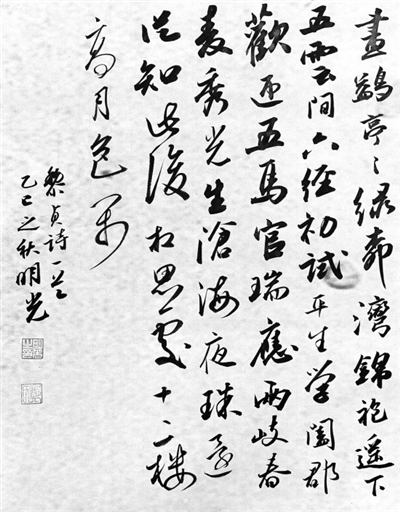 畫鷁亭〻绿鄣灣錦袍遥下
五雲間六經初試平生学闔郡
歡迎五馬官瑞應兩岐春
麦秀光生滄海夜珠還
從知此後相思處十二樓
高月色
黎貞詩一首
乙巳之秋明光